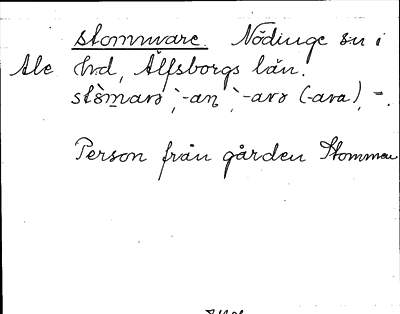 stommare. Nödinge sn i
Ale hd, Älfsborgs län.
stòmarə, -an, -arə (-ara), -.
Person från gården Stommen